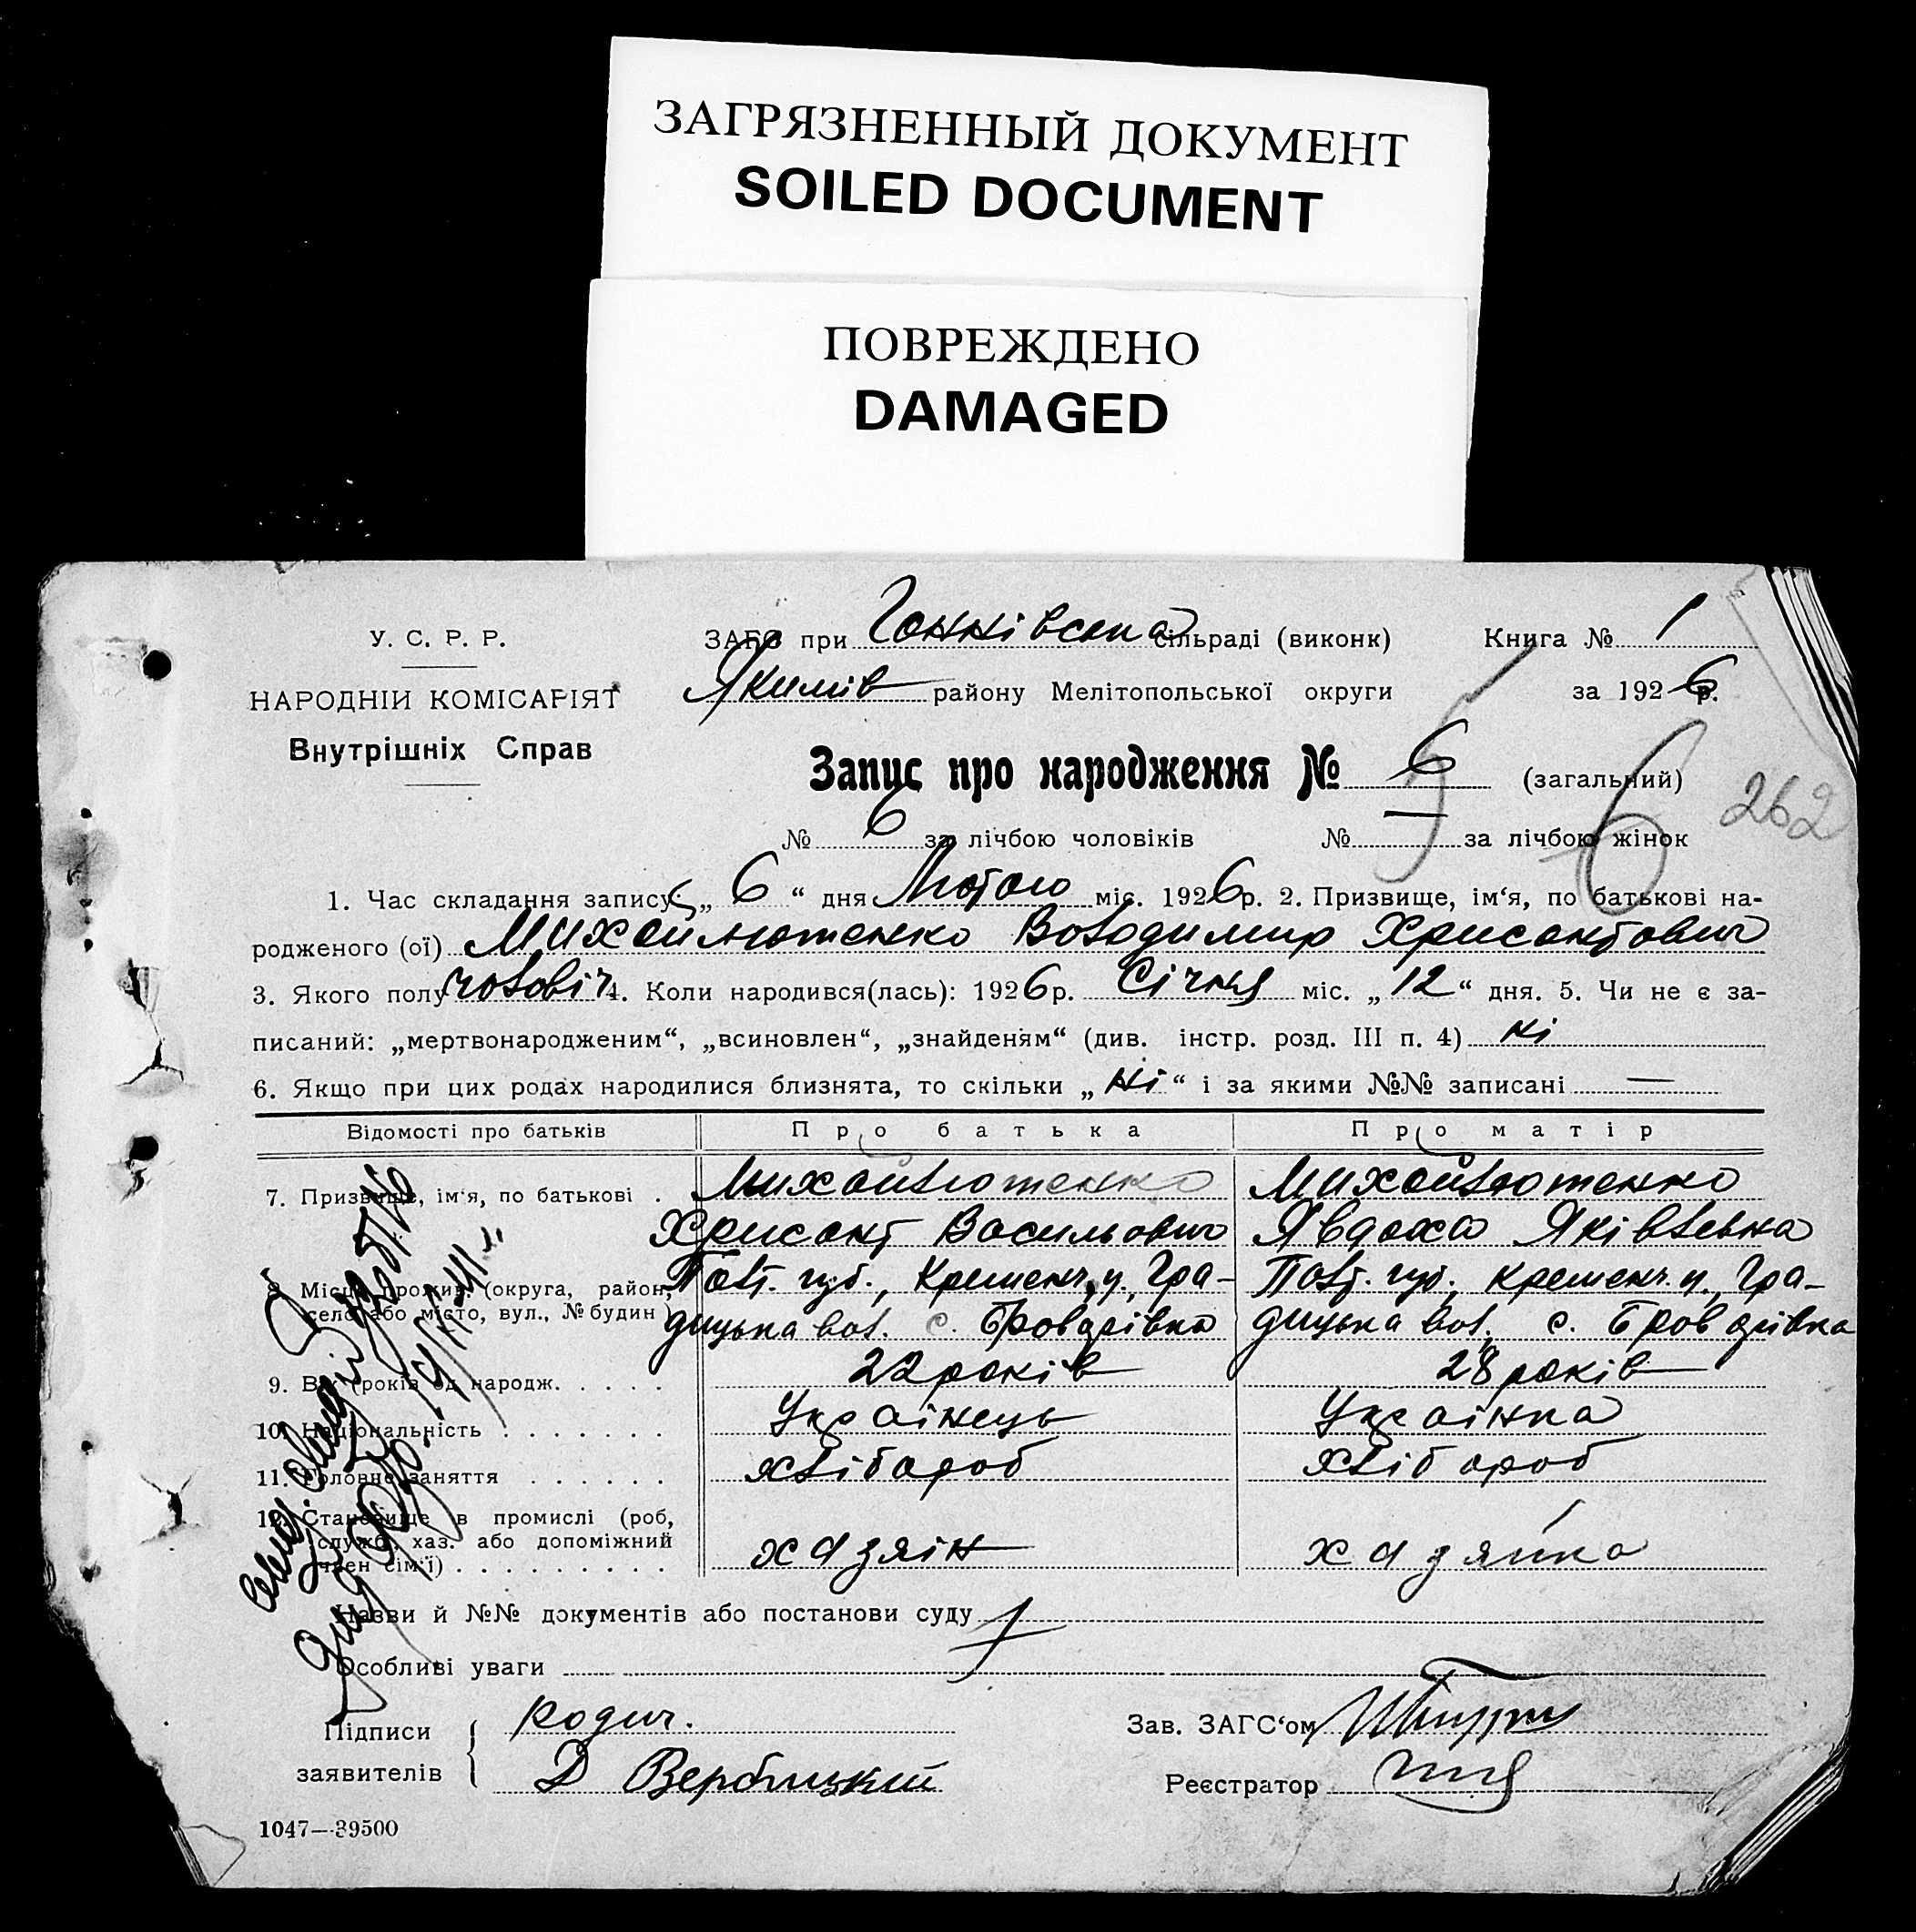 ЗАГРЯЗНЕННЫЙ ДОКУМЕНТ
SOILED DOCUMENT
ПОВРЕЖДЕНО
DAMAGED
У. С. Р. Р.
НАРОДНІЙ КОМІСАРІЯТ
Внутрішніх Справ
ЗАГС при Ганнівська сільраді (виконк) Книга № 1
Якимів району Мелітопольської округи за 1926 р.
Запис про народження № 6 (загальний)
262
№ 6 за лічбою чоловіків № — за лічбою жінок
6
1. Час складання запису „ 6 “ дня Лютого міс. 1926 р. 2. Призвище, ім‘я, по батькові на-
родженого (ої) Михайлютенко Володимир Хрисантович
3. Якого полу чоловіч 4. Коли народився(лась): 1926 р. Січня міс. „ 12 “ дня. 5. Чи не є за-
писаний: „мертвонародженим“, „всиновлен“, „знайденям“ (див. інстр. розд. III п. 4) ні
6. Якщо при цих родах народилися близнята, то скільки „ ні “ і за якими №№ записані —
Відомості про батьків Про батька Про матір
7. Призвище, ім‘я, по батькові . Михайлютенко Михайлютенко
Хрисант Васильович Явдоха Яківлевна
8. Місце прожив. (округа, район, Полт. губ., Кременч. у., Гра- Полт. губ., Кременч. у., Гра-
село або місто, вул., № будин.) дицька вол. с. Бровдрівка дицька вол. с. Бровдрівка
9. Вік (років од народж. . . . . . 22 років 28 років
10. Національність . . . . . . . Українець Українка
11. Головне заняття . . . . . . хлібороб хлібороб
12. Становище в промислі (роб,
служб, хаз. або допоміжний
член сім‘ї) . . . . . . . . . хазяїн хазяйка
Назви й №№ документів або постанови суду
Особливі уваги
Підписи родич. Зав. ЗАГС‘ом
заявителів Д Вербицкий Реєстратор
1047—39500